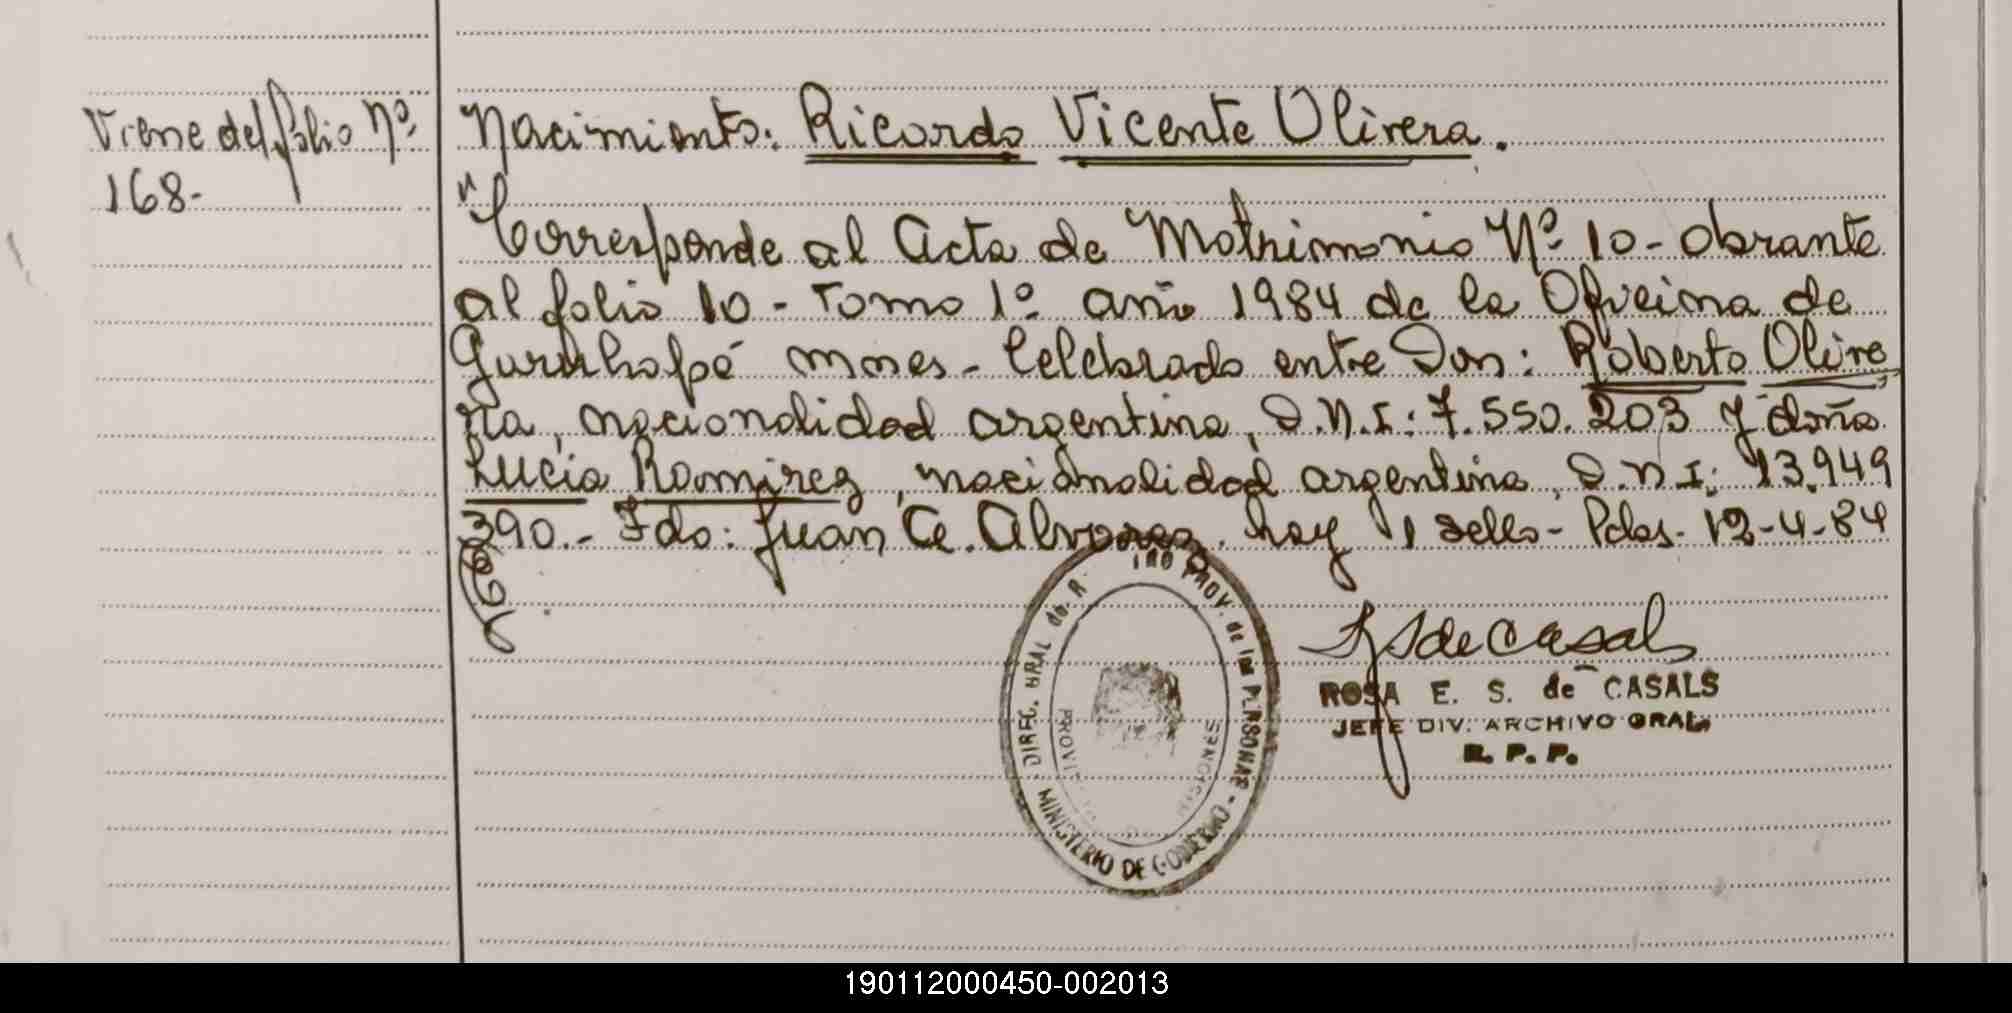 Viene del folio Nº
168-
Nacimiento: Ricardo Vicente Olivera.
"Corresponde al Acta de Matrimonio Nº 10- obrante
al folio 10 - Tomo 1º año 1984 de la Oficina de
Guruhapé Mnes - Celebrado entre Don: Roberto Olive
ra, nacionalidad argentina, D.N.I: 7.550.203 y doña
Lucia Ramirez, nacionalidad argentina, D.N.I: 13.949
390.- Fdo: Juan C. Alvarez. hay 1 sello- Pdas. 12-4-84
DIREC. GRAL de. R PROV. de las PERSONAS - MINISTERIO DE GOBIERNO
deCasals
ROSA E. S. de CASALS
JEFE DIV. ARCHIVO GRAL.
R. P. P.
190112000450-002013